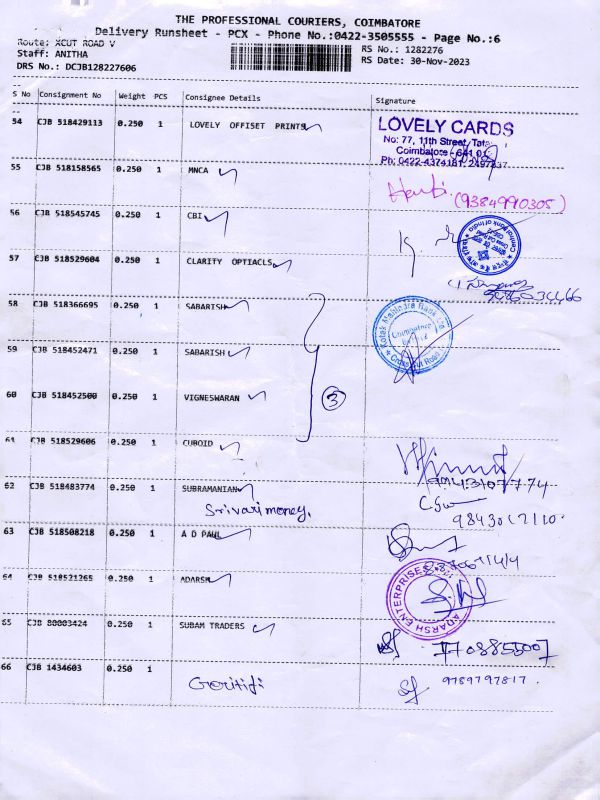 THE PROFESSIONAL COURIERS, COIMBATORE
Delivery Runsheet - PCX - Phone No.:0422-3505555 - Page No.:6
Route: XCUT ROAD V
Staff: ANITHA
DRS No.: DCJB128227606
RS No.: 1282276
RS Date: 30-Nov-2023
S No Consignment No Weight PCS Consignee Details Signature
54 CJB 518429113 0.250 1 LOVELY OFFISET PRINTS
LOVELY CARDS
No: 77, 11th Street, Tata
Coimbatore - 641 01
Ph: 0422-4374181, 2497237
55 CJB 518158565 0.250 1 MNCA
(9384990305)
56 CJB 518545745 0.250 1 CBI
57 CJB 518529604 0.250 1 CLARITY OPTIACLS
58 CJB 518366695 0.250 1 SABARISH
Kotak Mahindra Bank Ltd
Coimbatore
Cross Cut Road
59 CJB 518452471 0.250 1 SABARISH
60 CJB 518452500 0.250 1 VIGNESWARAN
3
61 CJB 518529606 0.250 1 CUBOID
62 CJB 518483774 0.250 1 SUBRAMANIAN
Srivarimoney.
63 CJB 518508218 0.250 1 A D PAUL
64 CJB 518521265 0.250 1 ADARSH
ADARSH ENTERPRISES
65 CJB 80003424 0.250 1 SUBAM TRADERS
66 CJB 1434603 0.250 1
9789797817.